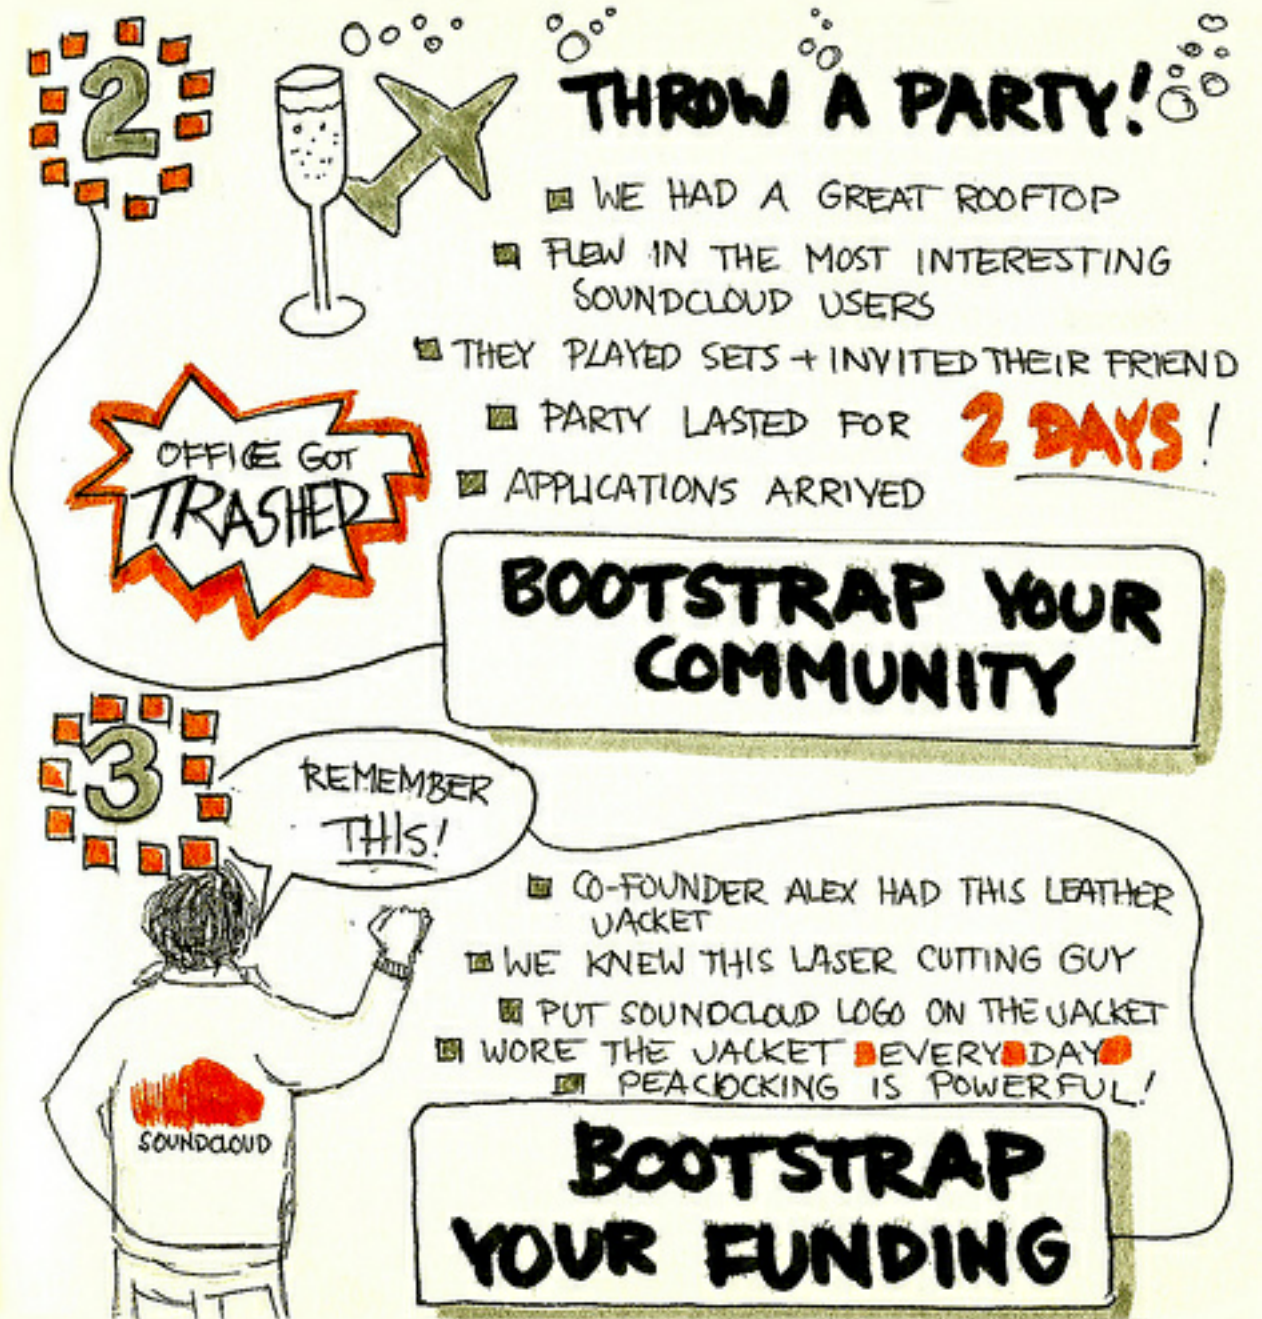 2
THROW A PARTY!
WE HAD A GREAT ROOFTOP
FLEW IN THE MOST INTERESTING
SOUNDCLOUD USERS
THEY PLAYED SETS + INVITED THEIR FRIEND
PARTY LASTED FOR 2 DAYS!
APPLICATIONS ARRIVED
OFFICE GOT
TRASHED
BOOTSTRAP YOUR
COMMUNITY
3
REMEMBER
THIS!
CO-FOUNDER ALEX HAD THIS LEATHER
JACKET
WE KNEW THIS LASER CUTTING GUY
PUT SOUNDCLOUD LOGO ON THE JACKET
WORE THE JACKET EVERY DAY
PEACOCKING IS POWERFUL!
SOUNDCLOUD
BOOTSTRAP
YOUR FUNDING